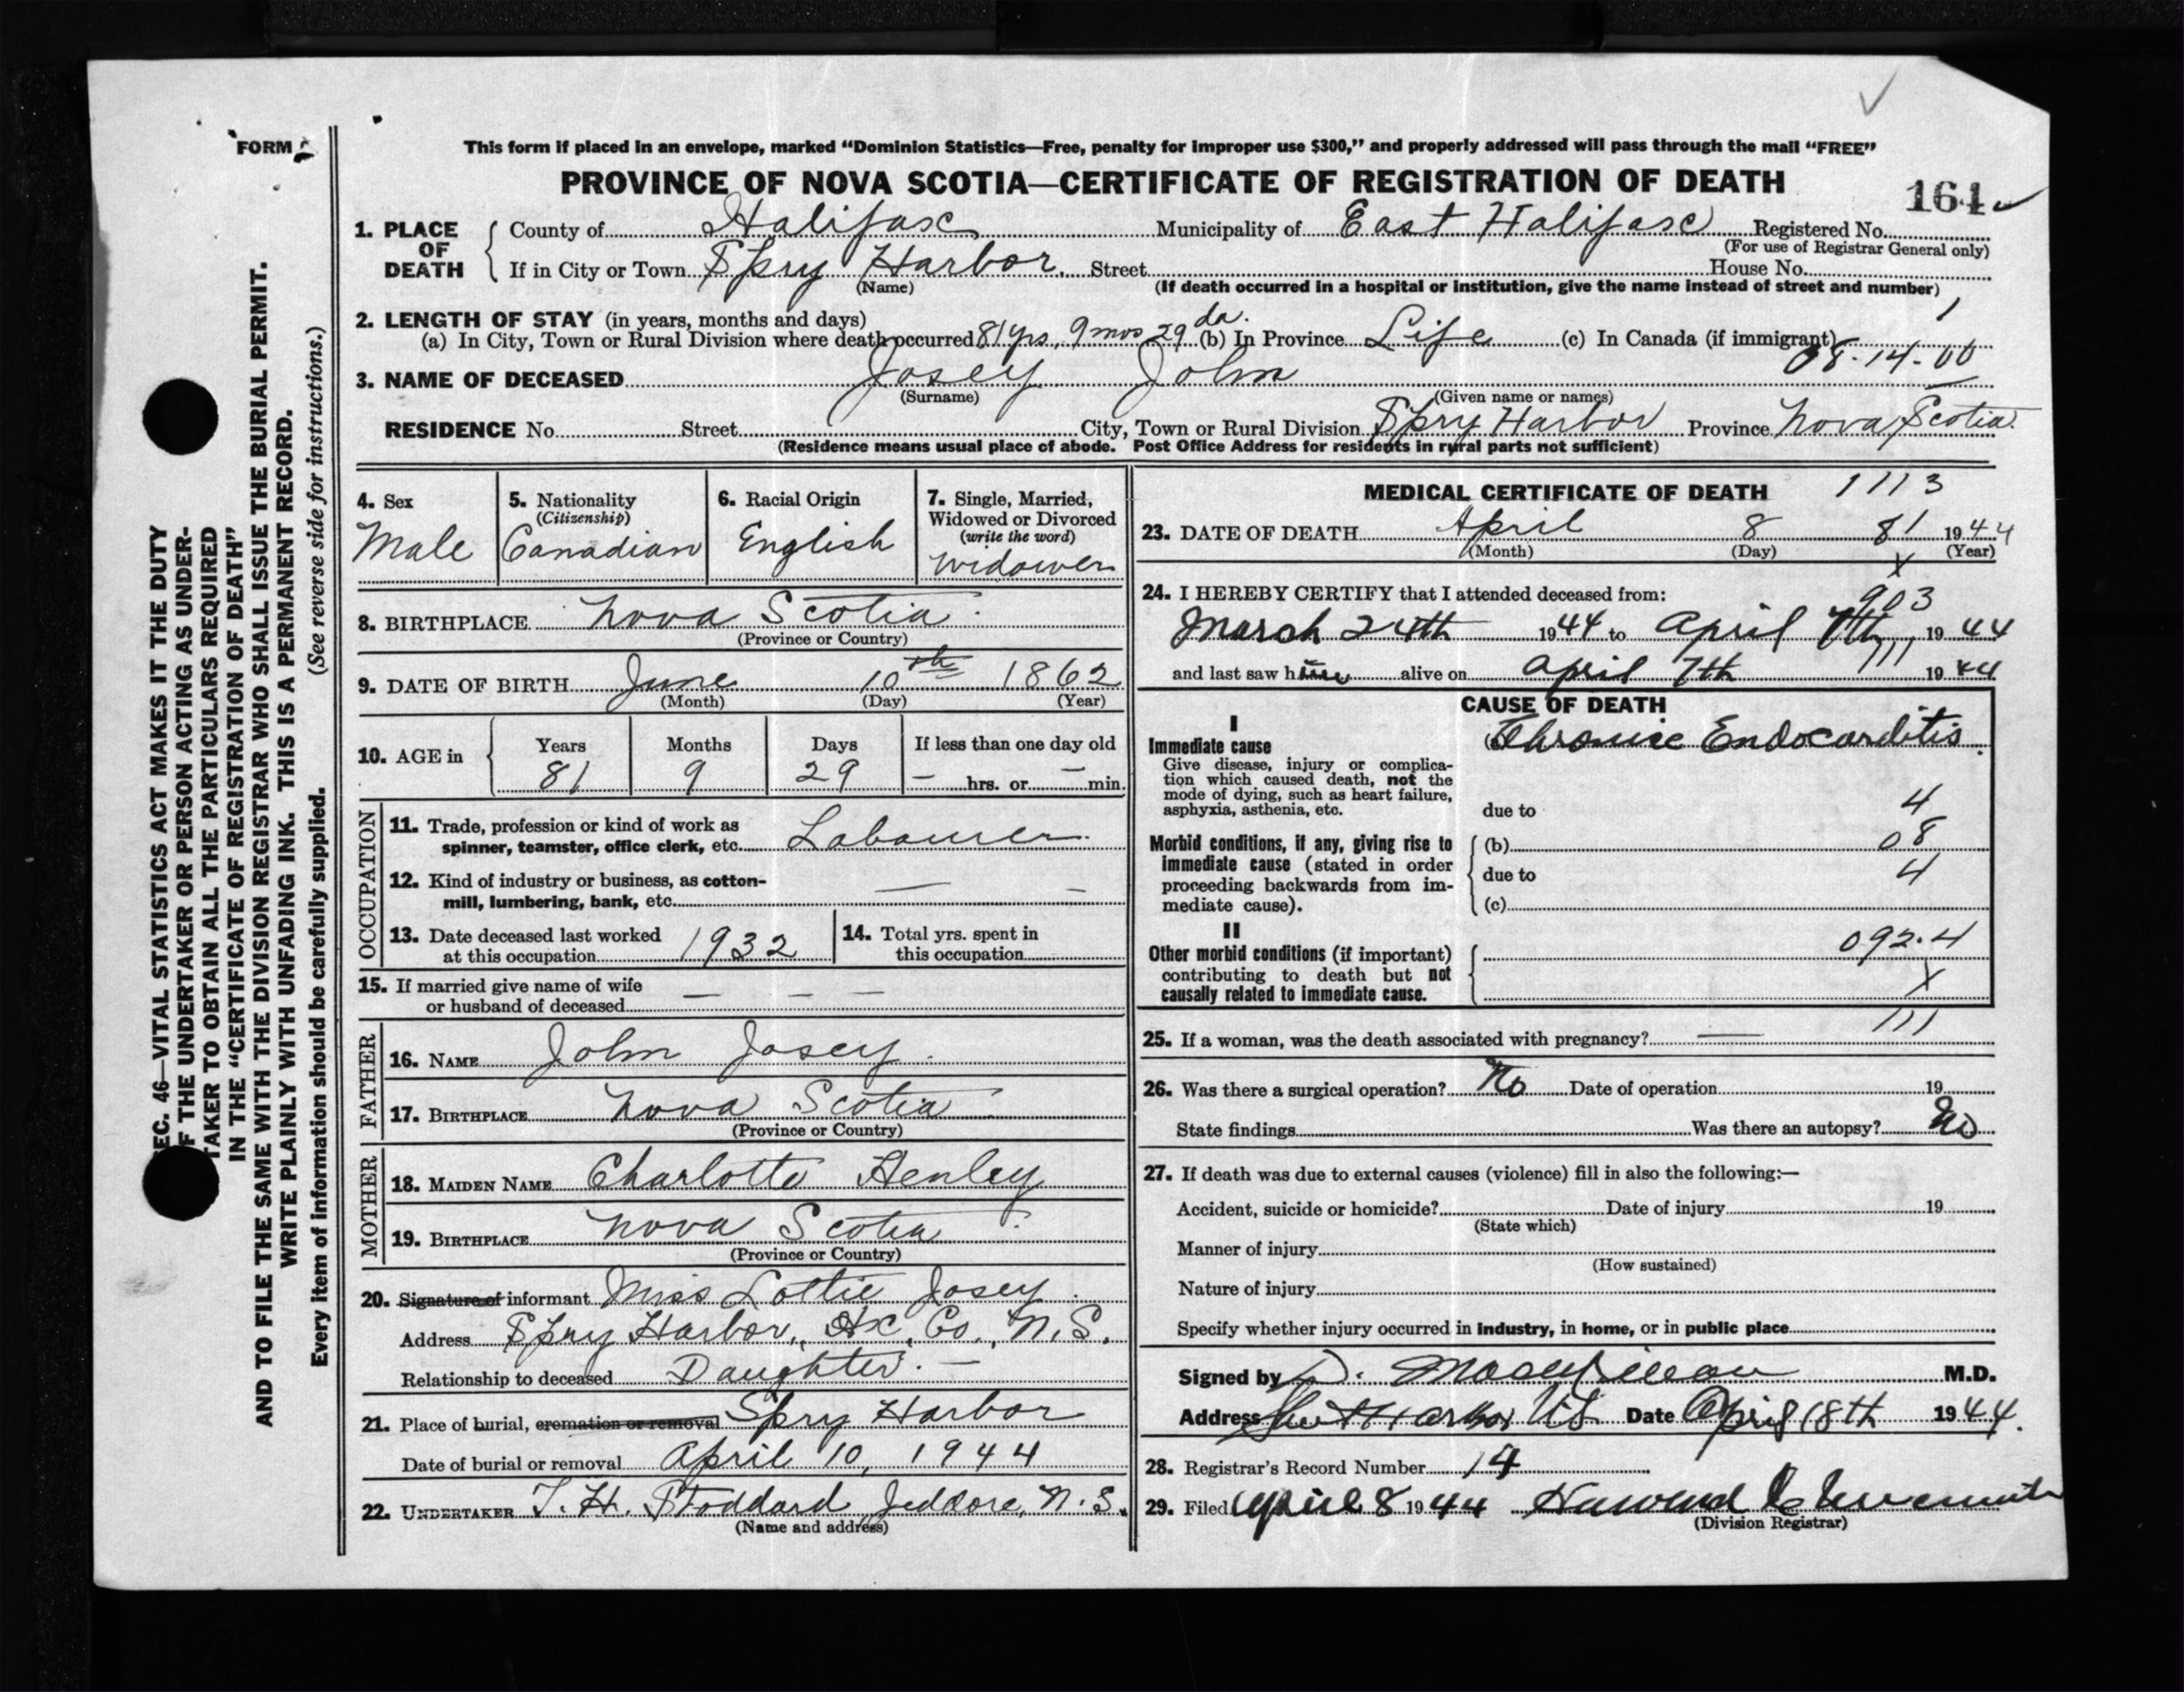 FORM
This form if placed in an envelope, marked “Dominion Statistics—Free, penalty for improper use $300,” and properly addressed will pass through the mail “FREE”
PROVINCE OF NOVA SCOTIA—CERTIFICATE OF REGISTRATION OF DEATH
164
1. PLACE OF DEATH County of Halifax Municipality of East Halifax Registered No.
(For use of Registrar General only)
If in City or Town Spry Harbor. Street House No.
(Name) (If death occurred in a hospital or institution, give the name instead of street and number)
2. LENGTH OF STAY (in years, months and days) 1
(a) In City, Town or Rural Division where death occurred 81 yrs, 9 mos 29 da. (b) In Province Life (c) In Canada (if immigrant)
08-14-00
3. NAME OF DECEASED Josey John
(Surname) (Given name or names)
RESIDENCE No. Street City, Town or Rural Division Spry Harbor Province Nova Scotia.
(Residence means usual place of abode. Post Office Address for residents in rural parts not sufficient)
4. Sex
Male
5. Nationality
(Citizenship)
Canadian
6. Racial Origin
English
7. Single, Married,
Widowed or Divorced
(write the word)
Widower
8. BIRTHPLACE Nova Scotia.
(Province or Country)
9. DATE OF BIRTH June 10th 1862
(Month) (Day) (Year)
10. AGE in Years Months Days If less than one day old
81 9 29 — hrs. or — min.
OCCUPATION
11. Trade, profession or kind of work as
spinner, teamster, office clerk, etc. Labourer.
12. Kind of industry or business, as cotton-
mill, lumbering, bank, etc. — —
13. Date deceased last worked
at this occupation 1932
14. Total yrs. spent in
this occupation
15. If married give name of wife
or husband of deceased — — —
FATHER
16. NAME John Josey.
17. BIRTHPLACE Nova Scotia.
(Province or Country)
MOTHER
18. MAIDEN NAME Charlotte Henley
19. BIRTHPLACE Nova Scotia.
(Province or Country)
20. Signature of informant Miss Lottie Josey.
Address Spry Harbor, Hx. Co., N.S.
Relationship to deceased Daughter. —
21. Place of burial, cremation or removal Spry Harbor
Date of burial or removal April 10, 1944
22. UNDERTAKER T. H. Stoddard Jeddore, N.S.
(Name and address)
MEDICAL CERTIFICATE OF DEATH 1113
23. DATE OF DEATH April 8 81 1944
(Month) (Day) (Year)
X
24. I HEREBY CERTIFY that I attended deceased from:
903
March 24th 1944 to April 7th, 1944
111
and last saw him alive on April 7th 1944
CAUSE OF DEATH
I
Immediate cause
Give disease, injury or complica-
tion which caused death, not the
mode of dying, such as heart failure,
asphyxia, asthenia, etc.
Chronic Endocarditis.
due to 4
Morbid conditions, if any, giving rise to
immediate cause (stated in order
proceeding backwards from im-
mediate cause).
(b) 08
due to 4
(c)
II
Other morbid conditions (if important)
contributing to death but not
causally related to immediate cause.
092.4
X
111
25. If a woman, was the death associated with pregnancy? —
26. Was there a surgical operation? No Date of operation 19
State findings Was there an autopsy? No
27. If death was due to external causes (violence) fill in also the following:—
Accident, suicide or homicide? Date of injury 19
(State which)
Manner of injury
(How sustained)
Nature of injury
Specify whether injury occurred in industry, in home, or in public place
Signed by D. M.D.
Address Sheet Harbor N.S. Date April 18th 1944.
28. Registrar's Record Number 14
29. Filed April 8 1944
(Division Registrar)
EC. 46—VITAL STATISTICS ACT MAKES IT THE DUTY
F THE UNDERTAKER OR PERSON ACTING AS UNDER-
TAKER TO OBTAIN ALL THE PARTICULARS REQUIRED
IN THE “CERTIFICATE OF REGISTRATION OF DEATH”
AND TO FILE THE SAME WITH THE DIVISION REGISTRAR WHO SHALL ISSUE THE BURIAL PERMIT.
WRITE PLAINLY WITH UNFADING INK. THIS IS A PERMANENT RECORD.
Every item of information should be carefully supplied. (See reverse side for instructions.)